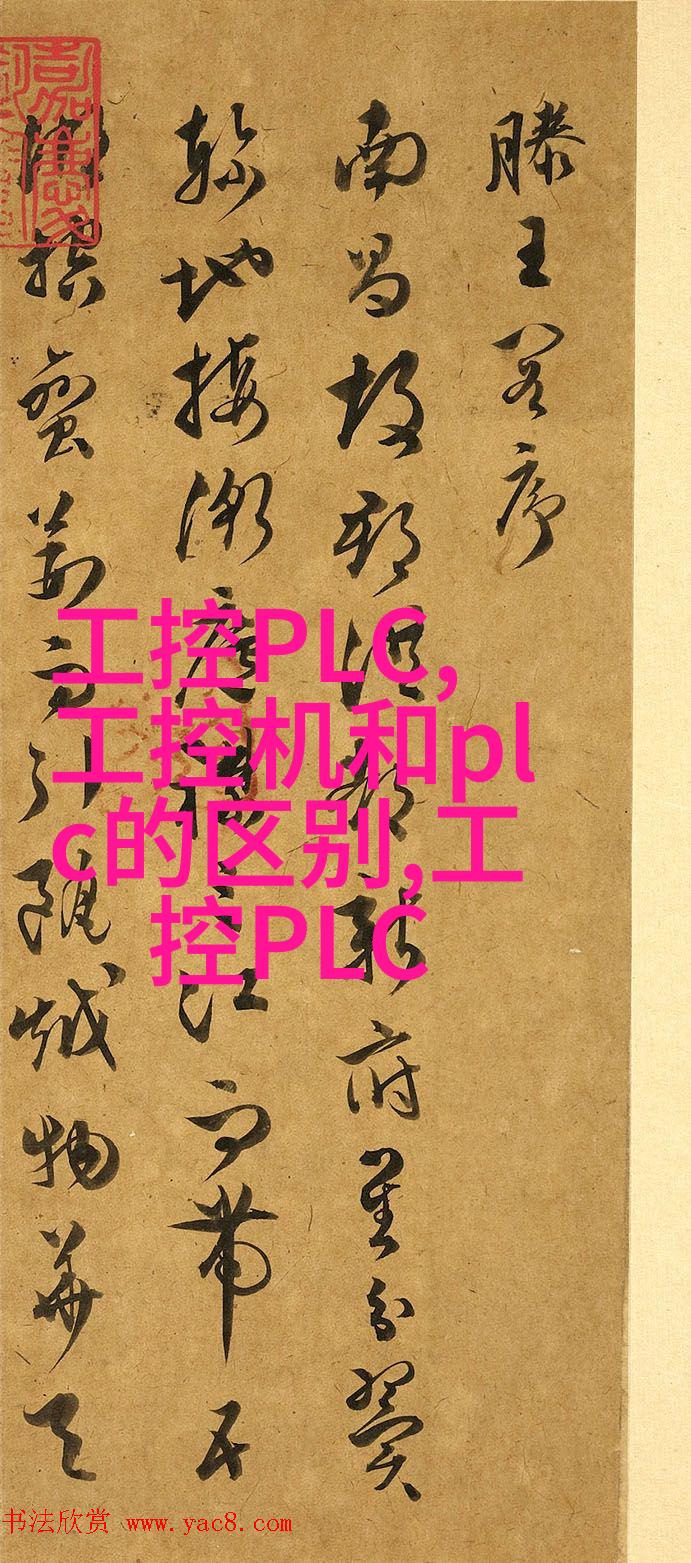 滕王閣序
南昌故郡洪都新府星分翼
軫地接衡廬襟三江而帶五
湖控蠻荊而引甌越物華天
工控PLC,
工控机和pl
c的区别,工
控PLC
书法欣赏 www.yac8.com